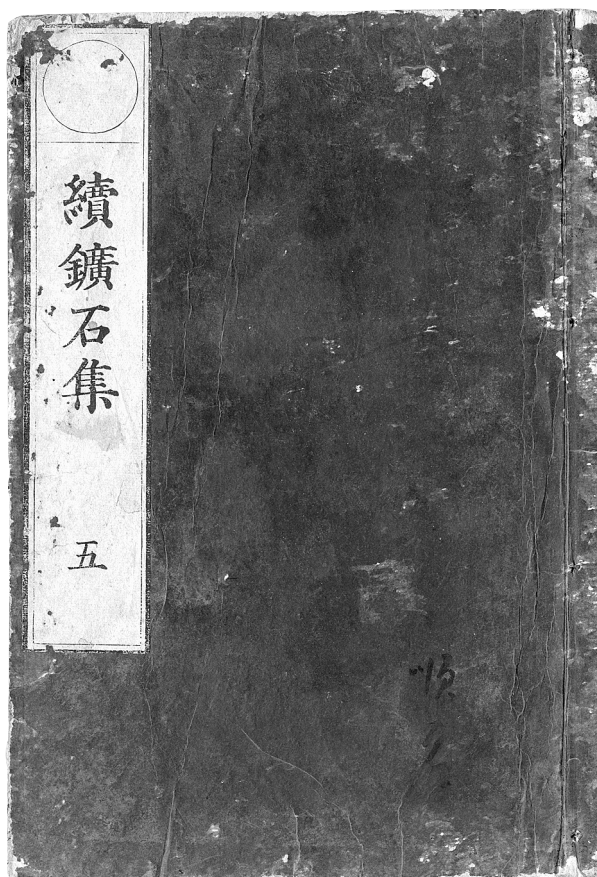 續鑛石集
五